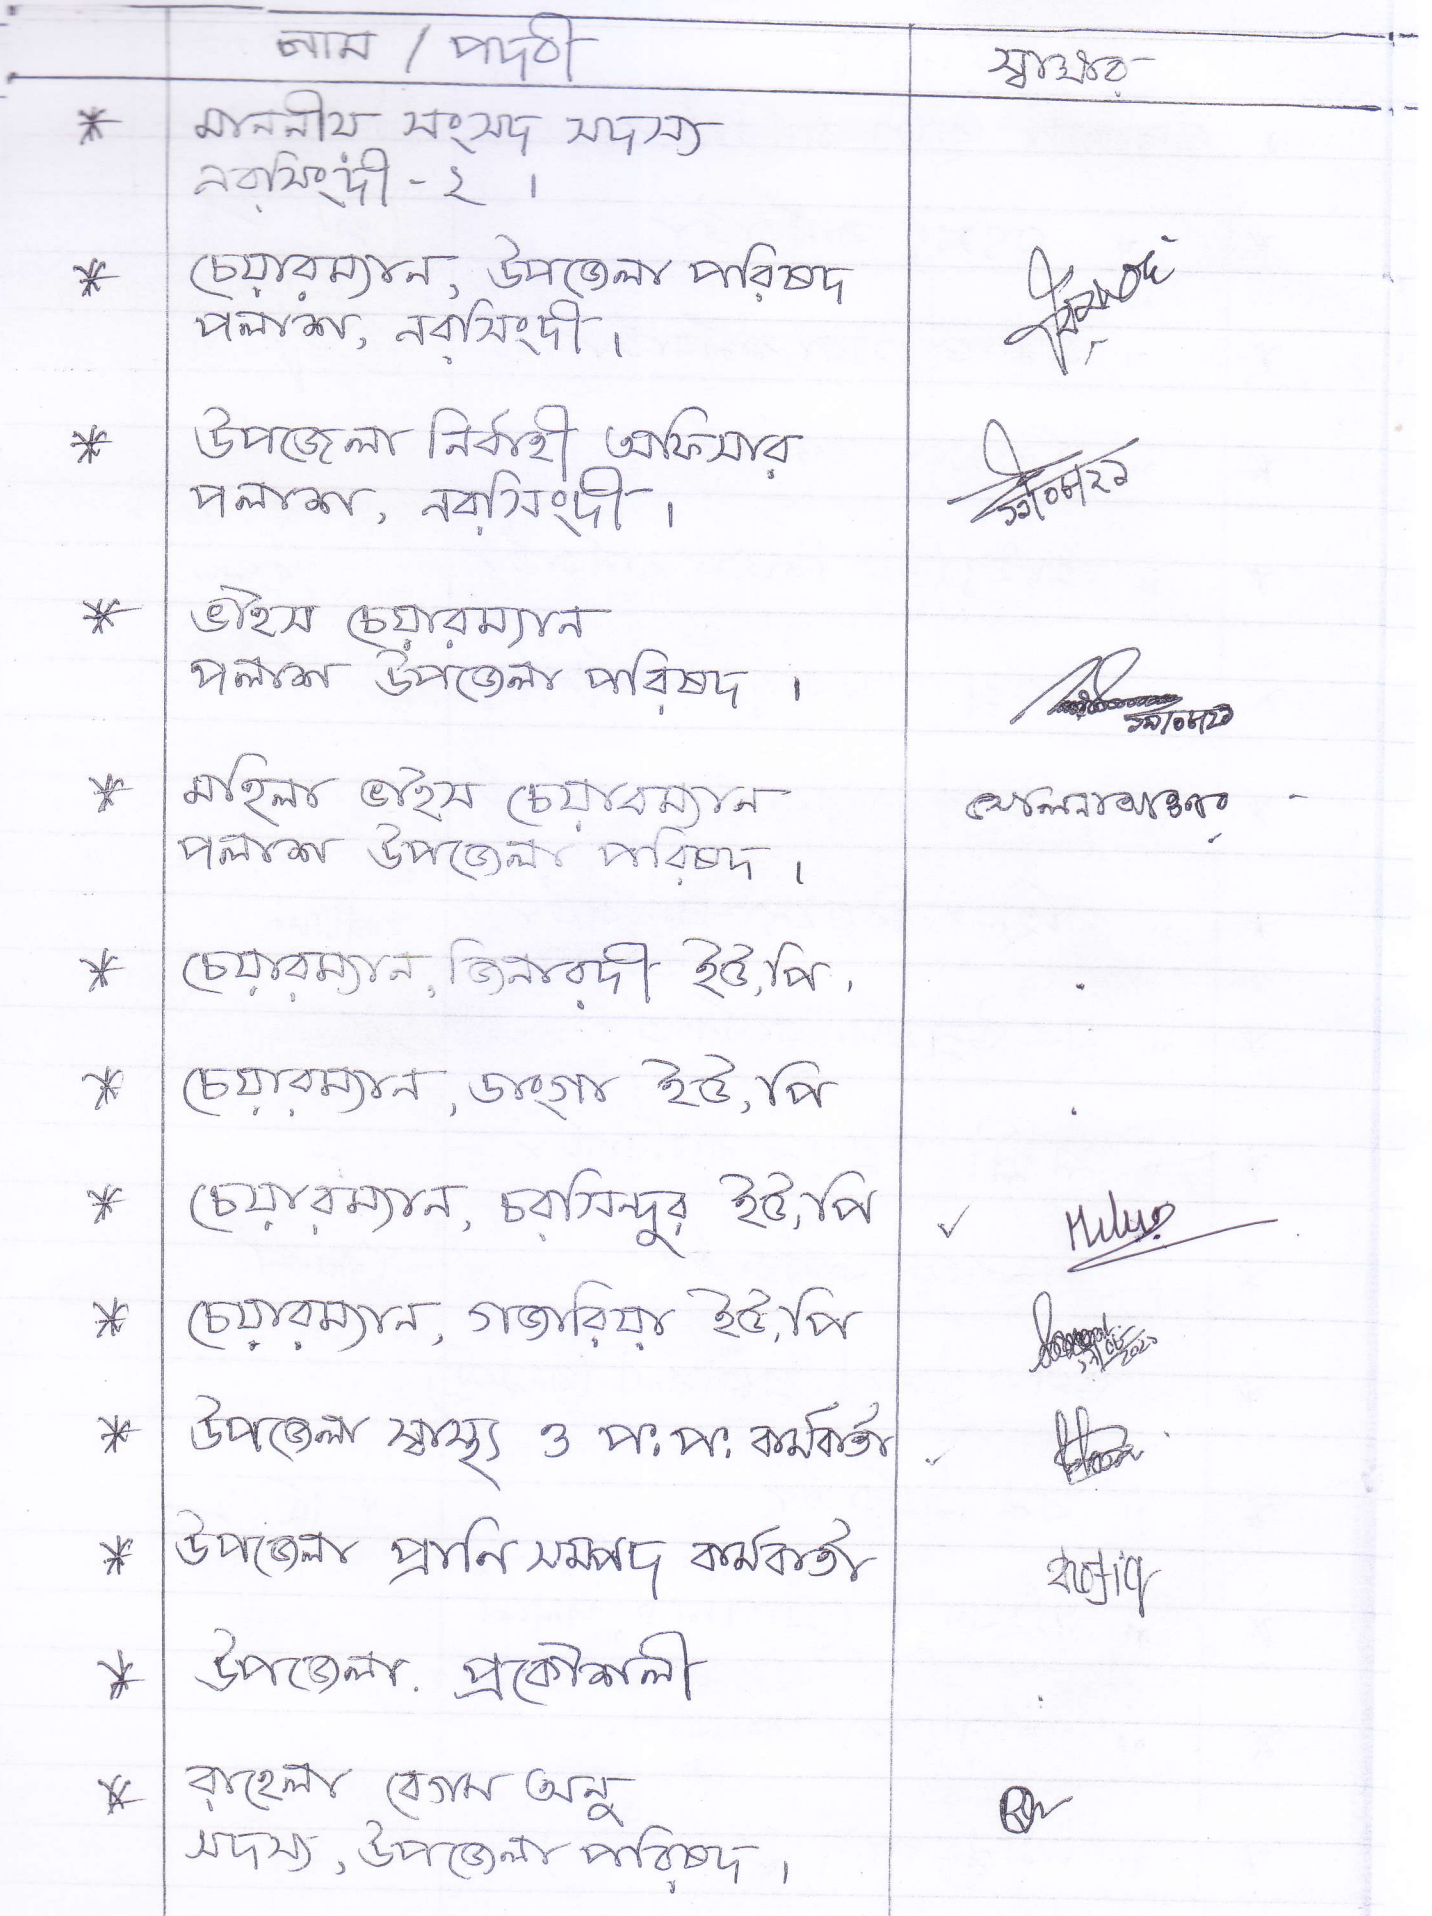 নাম / পদবী
স্বাক্ষর
* মাননীয় সংসদ সদস্য
নরসিংদী - ২ ।
* চেয়ারম্যান, উপজেলা পরিষদ
পলাশ, নরসিংদী ।
* উপজেলা নির্বাহী অফিসার
পলাশ, নরসিংদী ।
* ভাইস চেয়ারম্যান
পলাশ উপজেলা পরিষদ ।
* মহিলা ভাইস চেয়ারম্যান
পলাশ উপজেলা পরিষদ ।
* চেয়ারম্যান, জিনারদী ইউ,পি,
* চেয়ারম্যান, ডাংগা ইউ,পি
* চেয়ারম্যান, চরসিন্দুর ইউ,পি
* চেয়ারম্যান, গজারিয়া ইউ,পি
* উপজেলা স্বাস্থ্য ও প.প. কর্মকর্তা
* উপজেলা প্রানি সম্পদ কর্মকর্তা
* উপজেলা. প্রকৌশলী
* রাহেলা বেগম অনু
সদস্য, উপজেলা পরিষদ ।